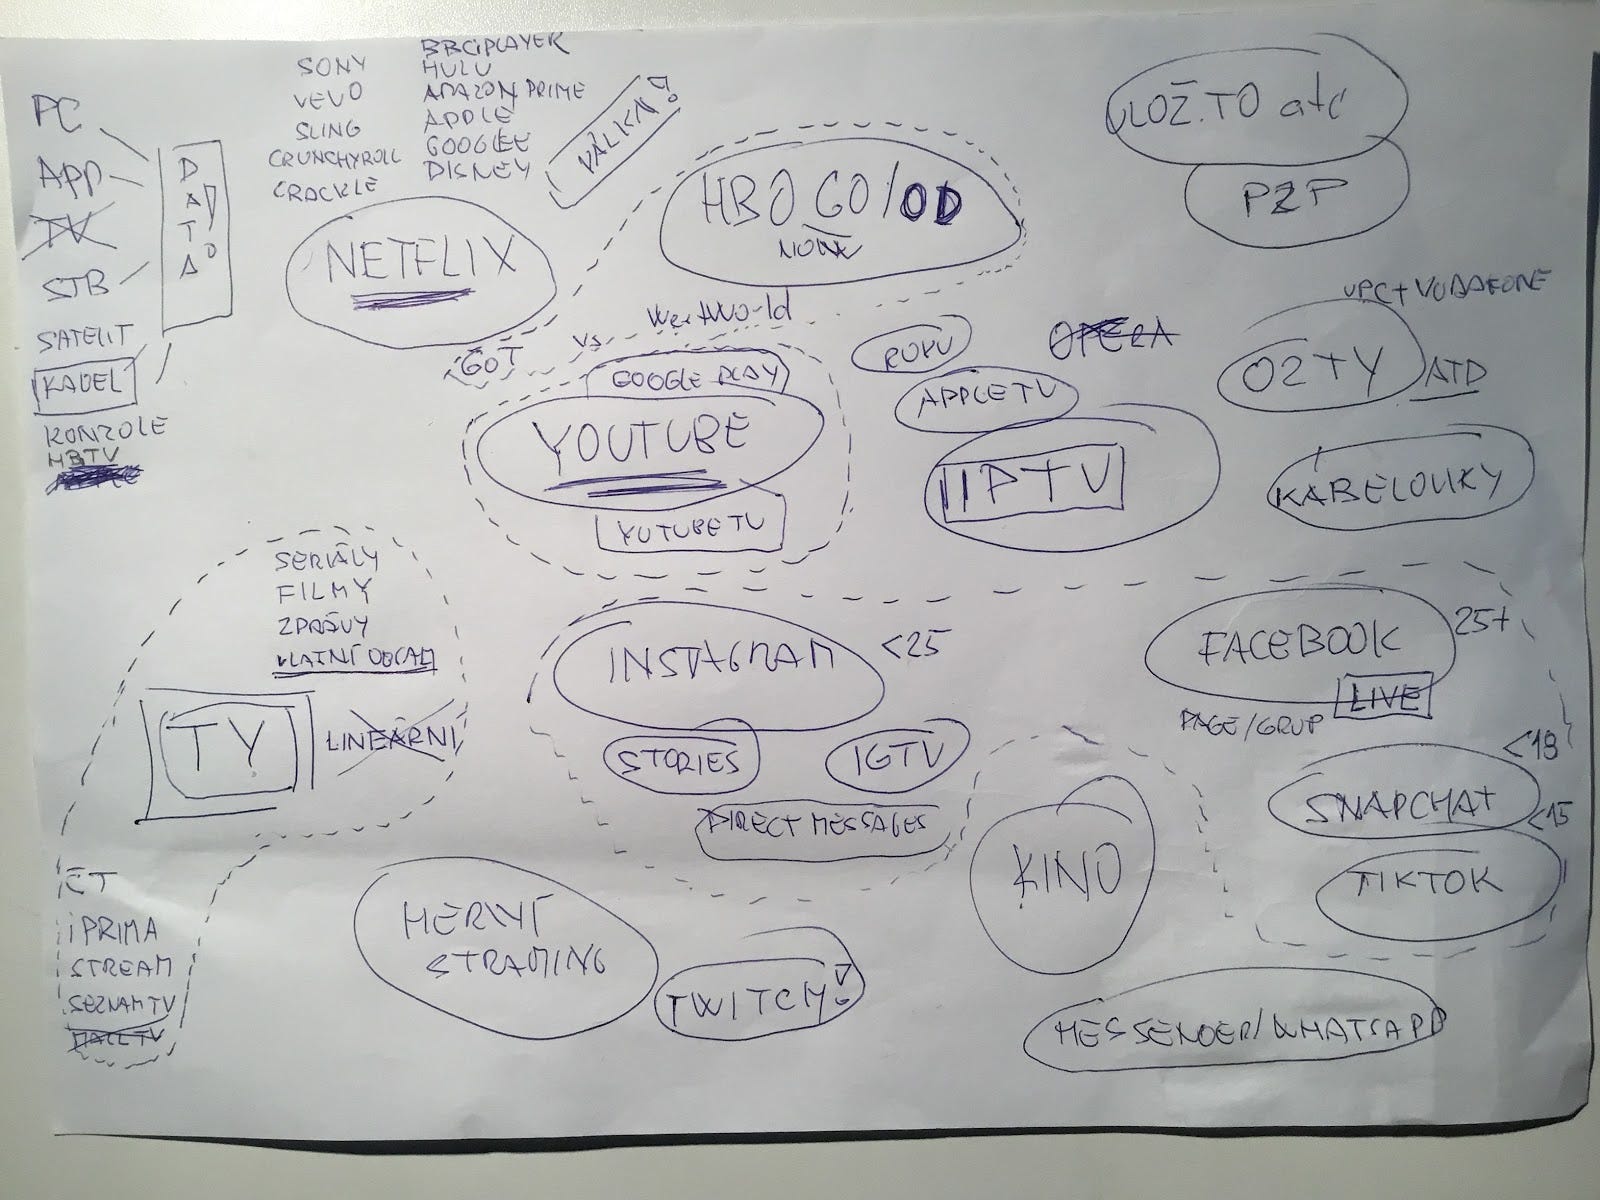 PC
APP
TV
STB
SATELIT
KABEL
KONZOLE
HBTV
DATA!
SONY
VEVO
SLING
CRUNCHYROLL
CRACKLE
BBCiPLAYER
HULU
AMAZON PRIME
APPLE
GOOGLE
DISNEY
VÁLKA!
NETFLIX
HBO GO/OD
NOW
GOT
vs
WestWorld
ULOŽ.TO atd
P2P
GOOGLE PLAY
YOUTUBE
YUTUBE TV
ROKU
APPLE TV
IPTV
OPERA
UPC+VODAFONE
O2TV
ATD
KABELOVKY
SERIÁLY
FILMY
ZPRÁVY
VLASTNÍ OBSAH
TV
LINEÁRNÍ
ČT
iPRIMA
STREAM
SEZNAM TV
MALL TV
INSTAGRAM
<25
STORIES
IGTV
DIRECT MESSAGES
FACEBOOK
25+
LIVE
PAGE/GRUP
<18
SNAPCHAT
<15
TIKTOK
KINO
HERNÍ
STRAMING
TWITCH!
MESSENGER/WHATSAPP